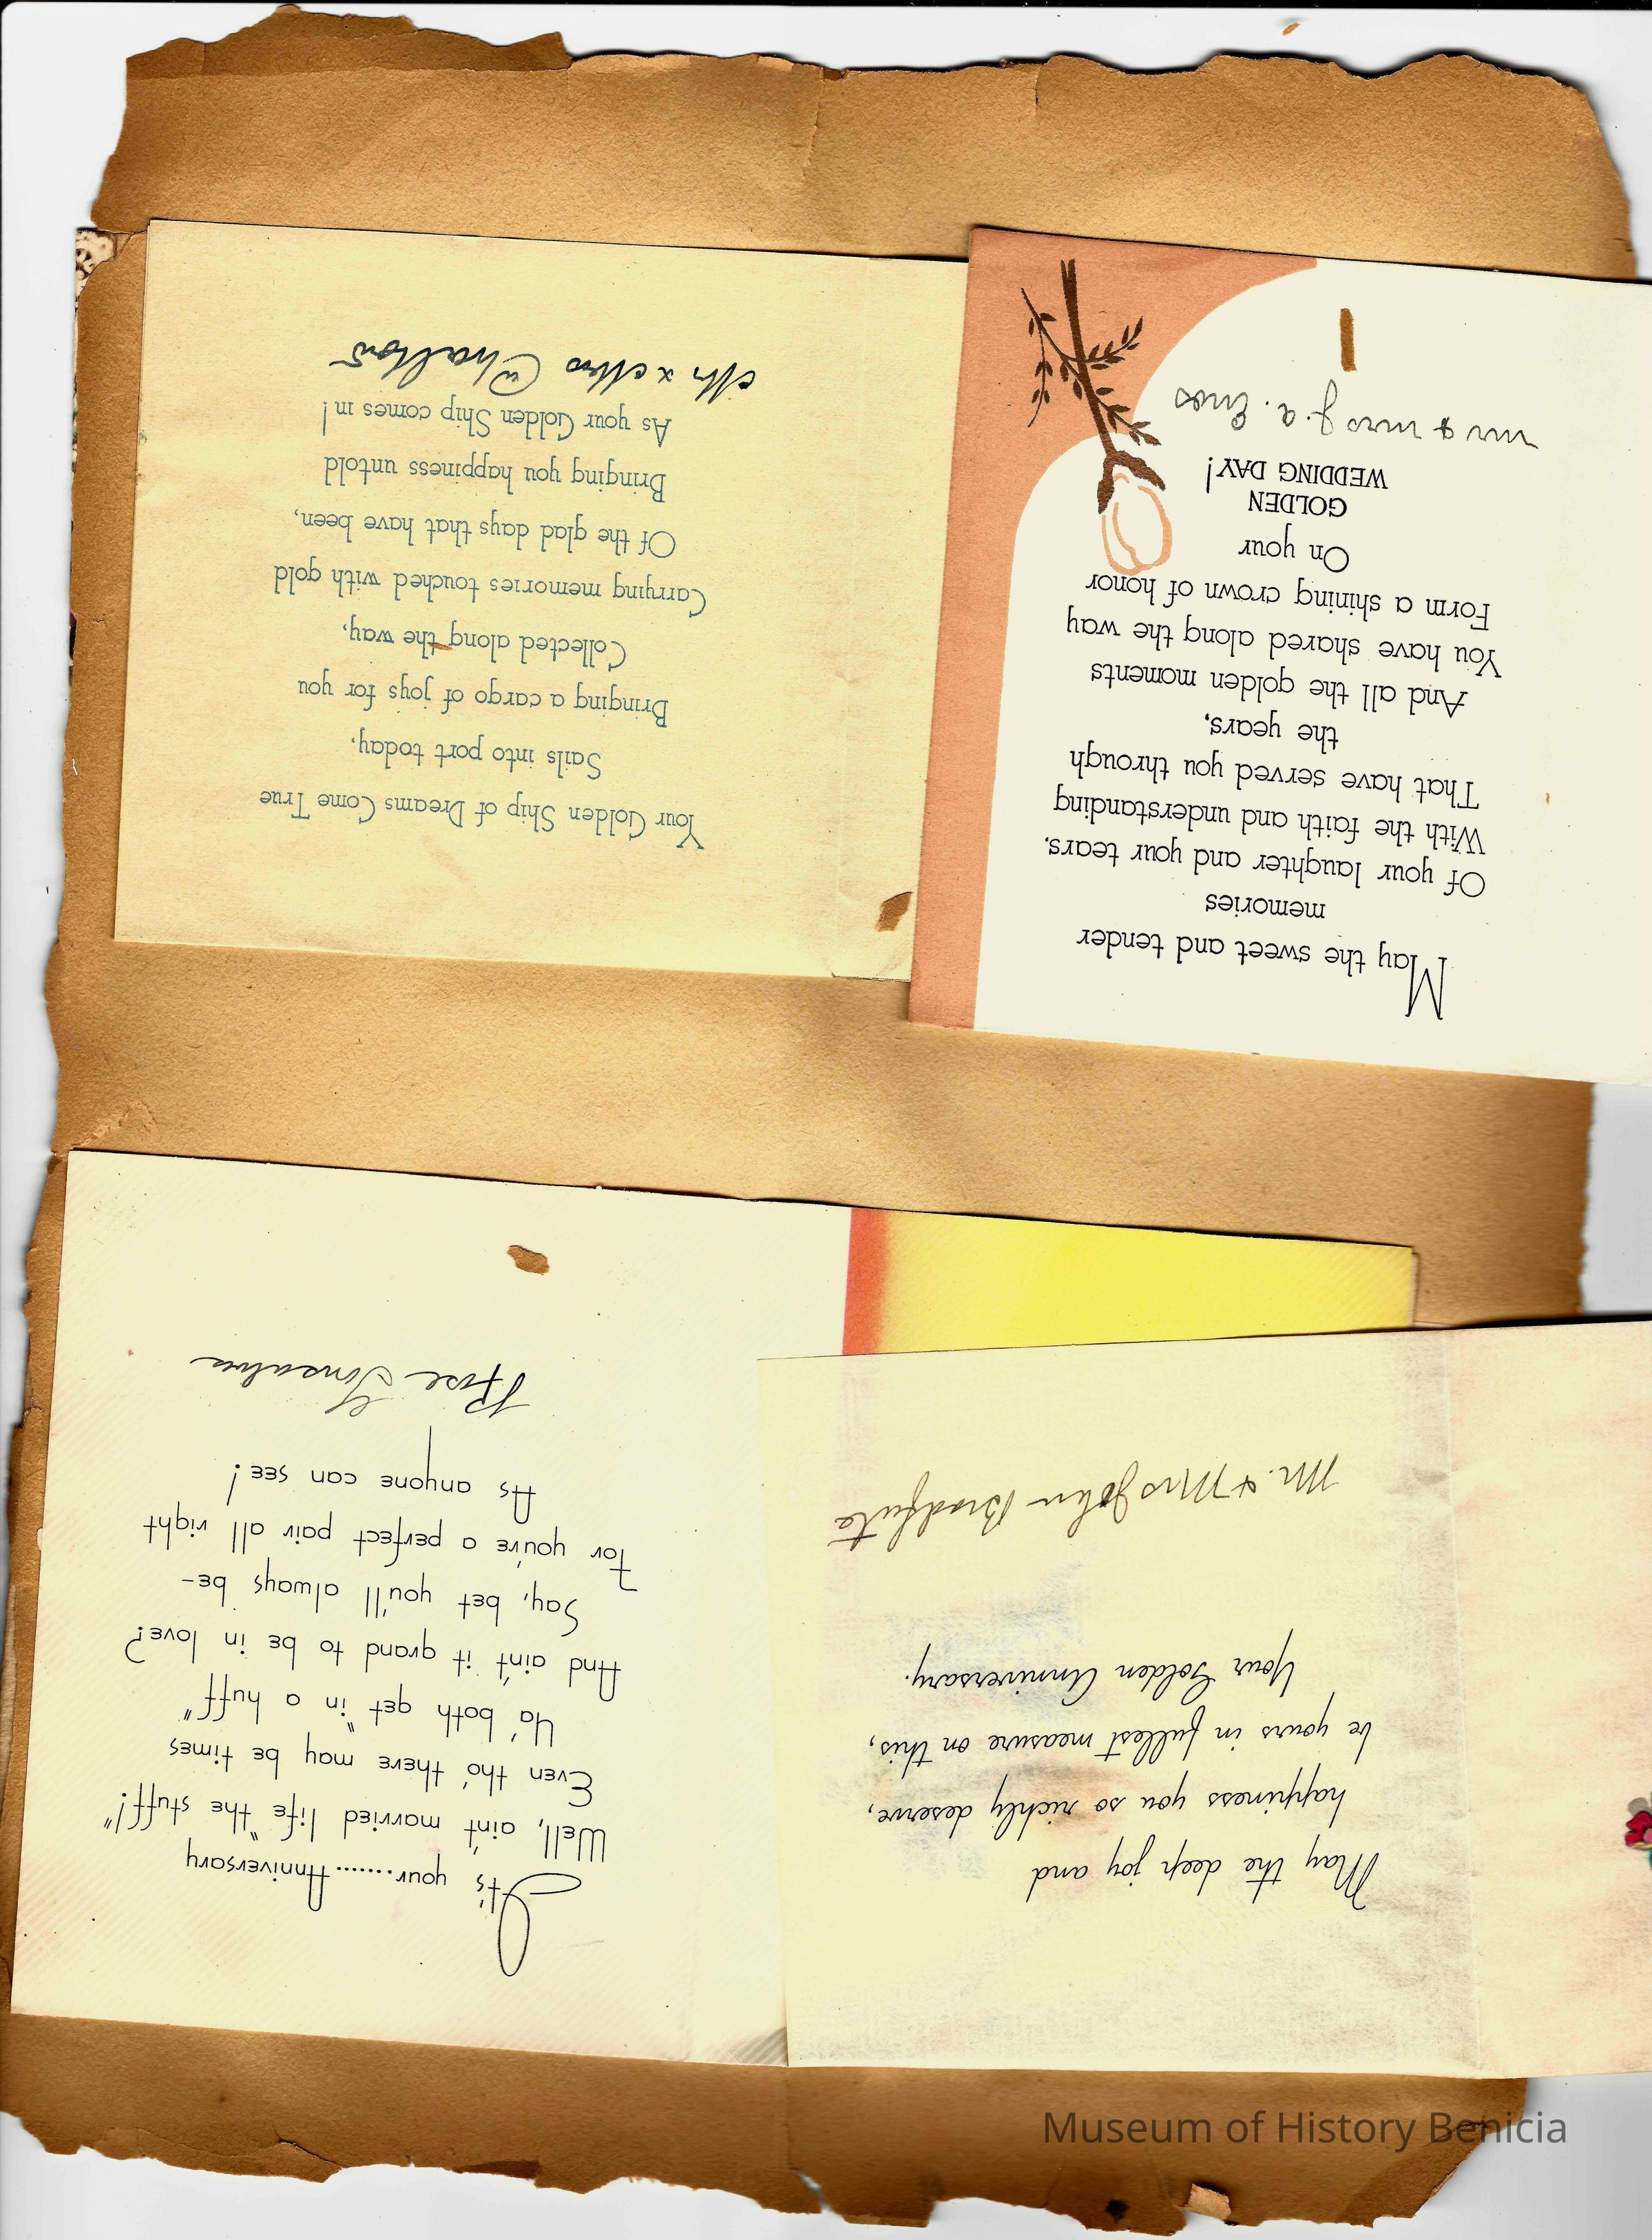 Your Golden Ship of Dreams Come True
Sails into port today,
Bringing a cargo of joys for you
Collected along the way,
Carrying memories touched with gold
Of the glad days that have been,
Bringing you happiness untold
As your Golden Ship comes in!
Mr & Mrs
May the sweet and tender
memories
Of your laughter and your tears,
With the faith and understanding
That have served you through
the years,
And all the golden moments
You have shared along the way
Form a shining crown of honor
On your
GOLDEN
WEDDING DAY!
Mr & Mrs J. A. Enos
It's your........Anniversary
Well, ain't married life "the stuff!"
Even tho' there may be times
Ya' both get "in a huff"
And ain't it grand to be in love?
Say, bet you'll always be-
For you're a perfect pair all right
As anyone can see!
Rose Gonsalves
May the deep joy and
happiness you so richly deserve,
be yours in fullest measure on this,
Your Golden Anniversary.
Mr. & Mrs John
Museum of History Benicia